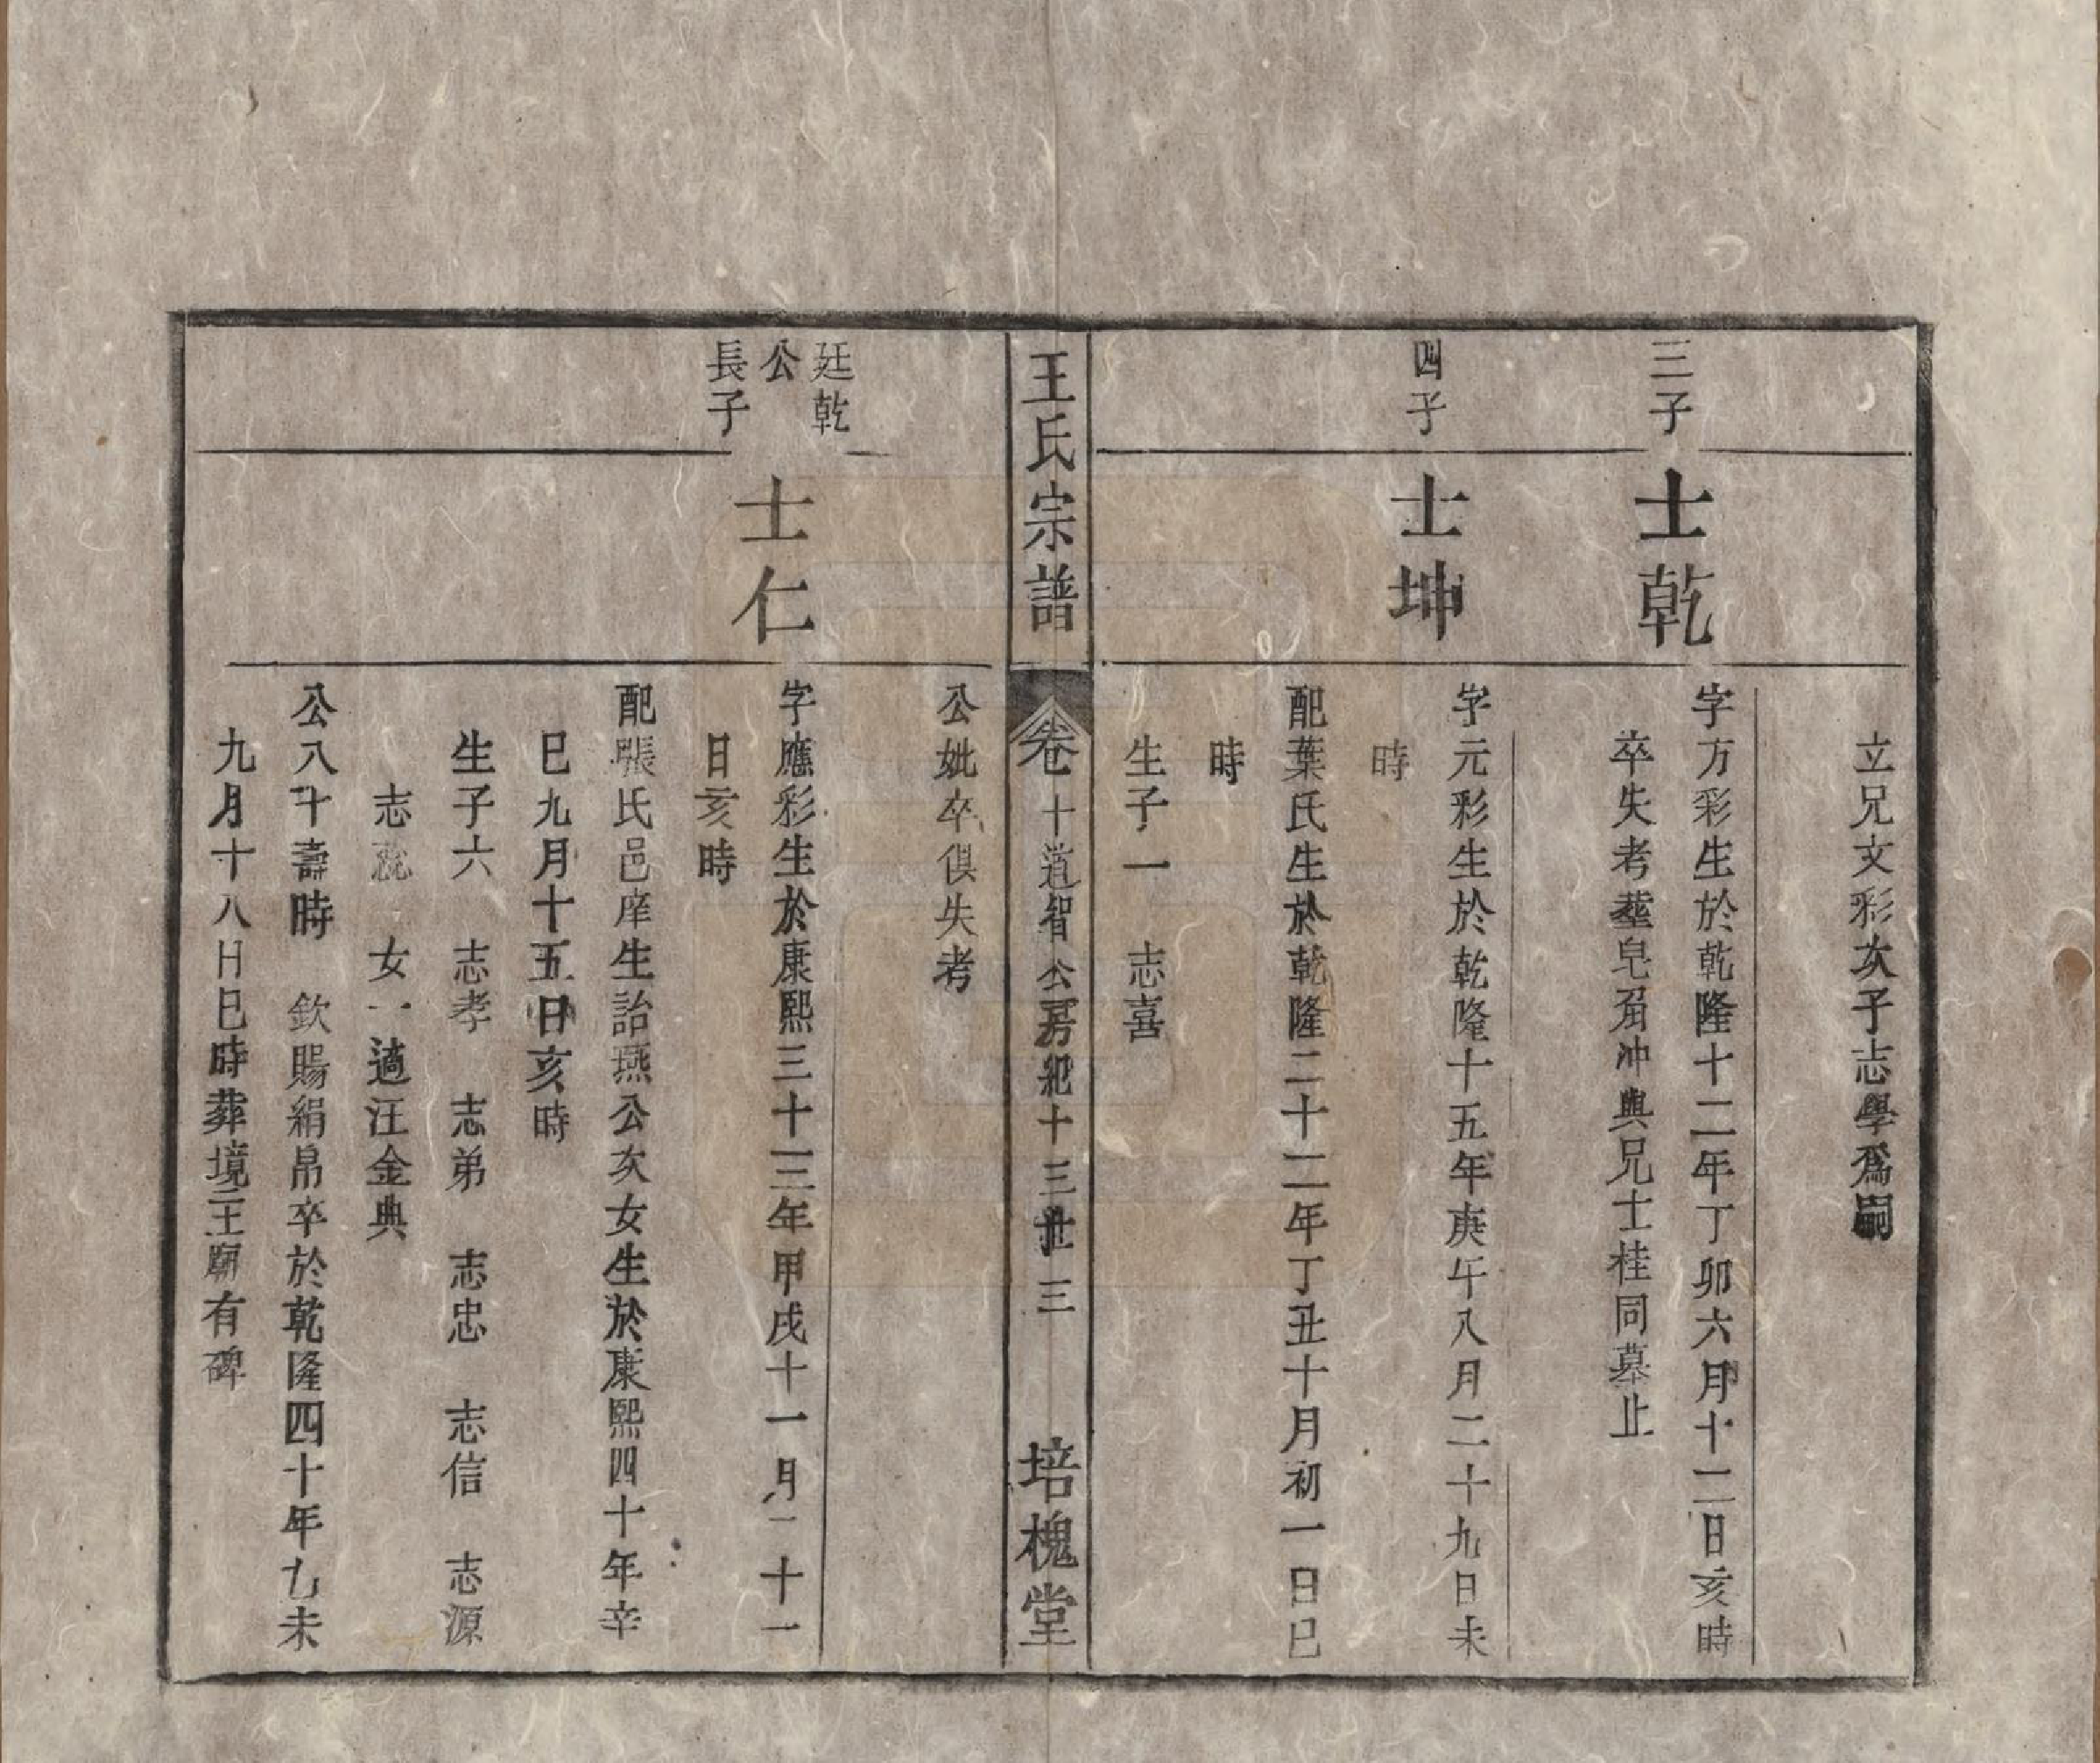 立兄文彩次子志學爲嗣
三子
士乾
字方彩生於乾隆十二年丁卯六月十二日亥時
卒失考塟皂角冲與兄士桂同墓止
四子
士坤
字元彩生於乾隆十五年庚午八月二十九日未
時
配葉氏生於乾隆二十二年丁丑十月初一日巳
時
生子一　志喜
王氏宗譜
卷十道智公房紀十三世三
培槐堂
公妣卒俱失考
廷乾
公
長子
士仁
字應彩生於康熙三十三年甲戌十一月二十一
日亥時
配張氏邑庠生詒燕公次女生於康熙四十年辛
巳九月十五日亥時
生子六　志孝　志弟　志忠　志信　志源
志　女一適汪金典
公八十壽時　欽賜絹帛卒於乾隆四十年乙未
九月十八日巳時葬境三王廟有碑